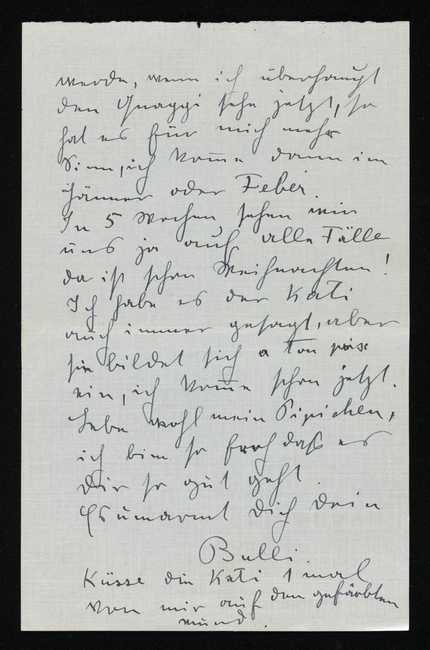 werde, wenn ich überhaupt
den Guaggi sehe jetzt, so
hat es für mich mehr
Sinn, ich kome dann im
Jänner oder Feber.
In 5 Wochen sehen wir
uns ja auf alle Fälle
da ist schon Weihnachten!
Ich habe es der Kati
auch immer gesagt, aber
sie bildet sich a Ton
ein, ich kome schon jetzt.
Lebe wohl mein Pipichen,
ich bin so froh daß es
Dir so gut geht.
Es umarmt Dich Dein
Bulli.
Küsse die Kati 1 mal
von mir auf den gefärbten
Mund.